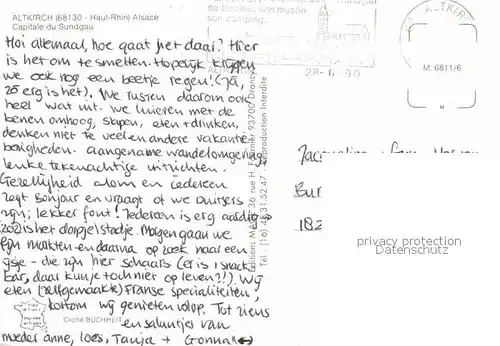 ALTKIRCH (68130 - Haut-Rhin) Alsace
Capitale du Sundgau
Hoi allemaal, hoe gaat het daar? Hier
is het om te smelten. Hopelijk krijgen
we ook nog een beetje regen! (Ja,
zó erg is het). We rusten daarom ook
heel wat uit. We luieren met de
benen omhoog, slapen, eten + drinken,
denken niet te veel en andere vakantie-
bezigheden. aangename wandelomgeving,
leuke tekenachtige uitzichten.
Gezelligheid alom en iedereen
zegt bonjour en vraagt of we Duitsers
zijn; lekker fout! Iedereen is erg aardig
zo is het dorpje/stadje. Morgen gaan we
fijn markten en daarna op zoek naar een
ijsje - die zijn hier schaars (er is 1 snack
bar, daar kun je toch niet op leven?!) Wij
eten (zelfgemaakte) Franse specialiteiten,
kortom wij genieten volop. Tot ziens
en saluutjes van
moeder anne, Loes, Tanja +
Cliché BUCHHEIT
Editions MAGE, 36 rue H. Fournier 93700 Drancy
Tél. (16) 48.31.52.47 Reproduction Interdite
sa piscine, son musée
son camping.
28-6 90
ALTKIRCH
M. 6811/6
Bur
182
privacy protection
Datenschutz